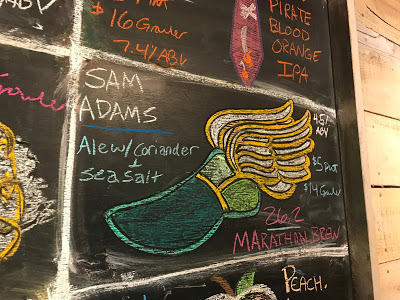 $16 Growler
7.4% ABV
PIRATE
BLOOD
ORANGE
IPA
SAM
ADAMS
Ale w/ Coriander
+
Sea Salt
4.5%
ABV
$5 Pint
$14 Growler
26.2
MARATHON BREW
PEACH